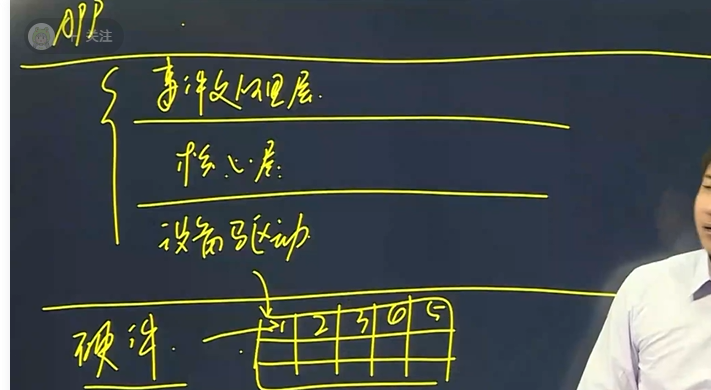 APP
+ 关注
事件处理层
核心层
设备驱动
硬件
1 2 3 6 5